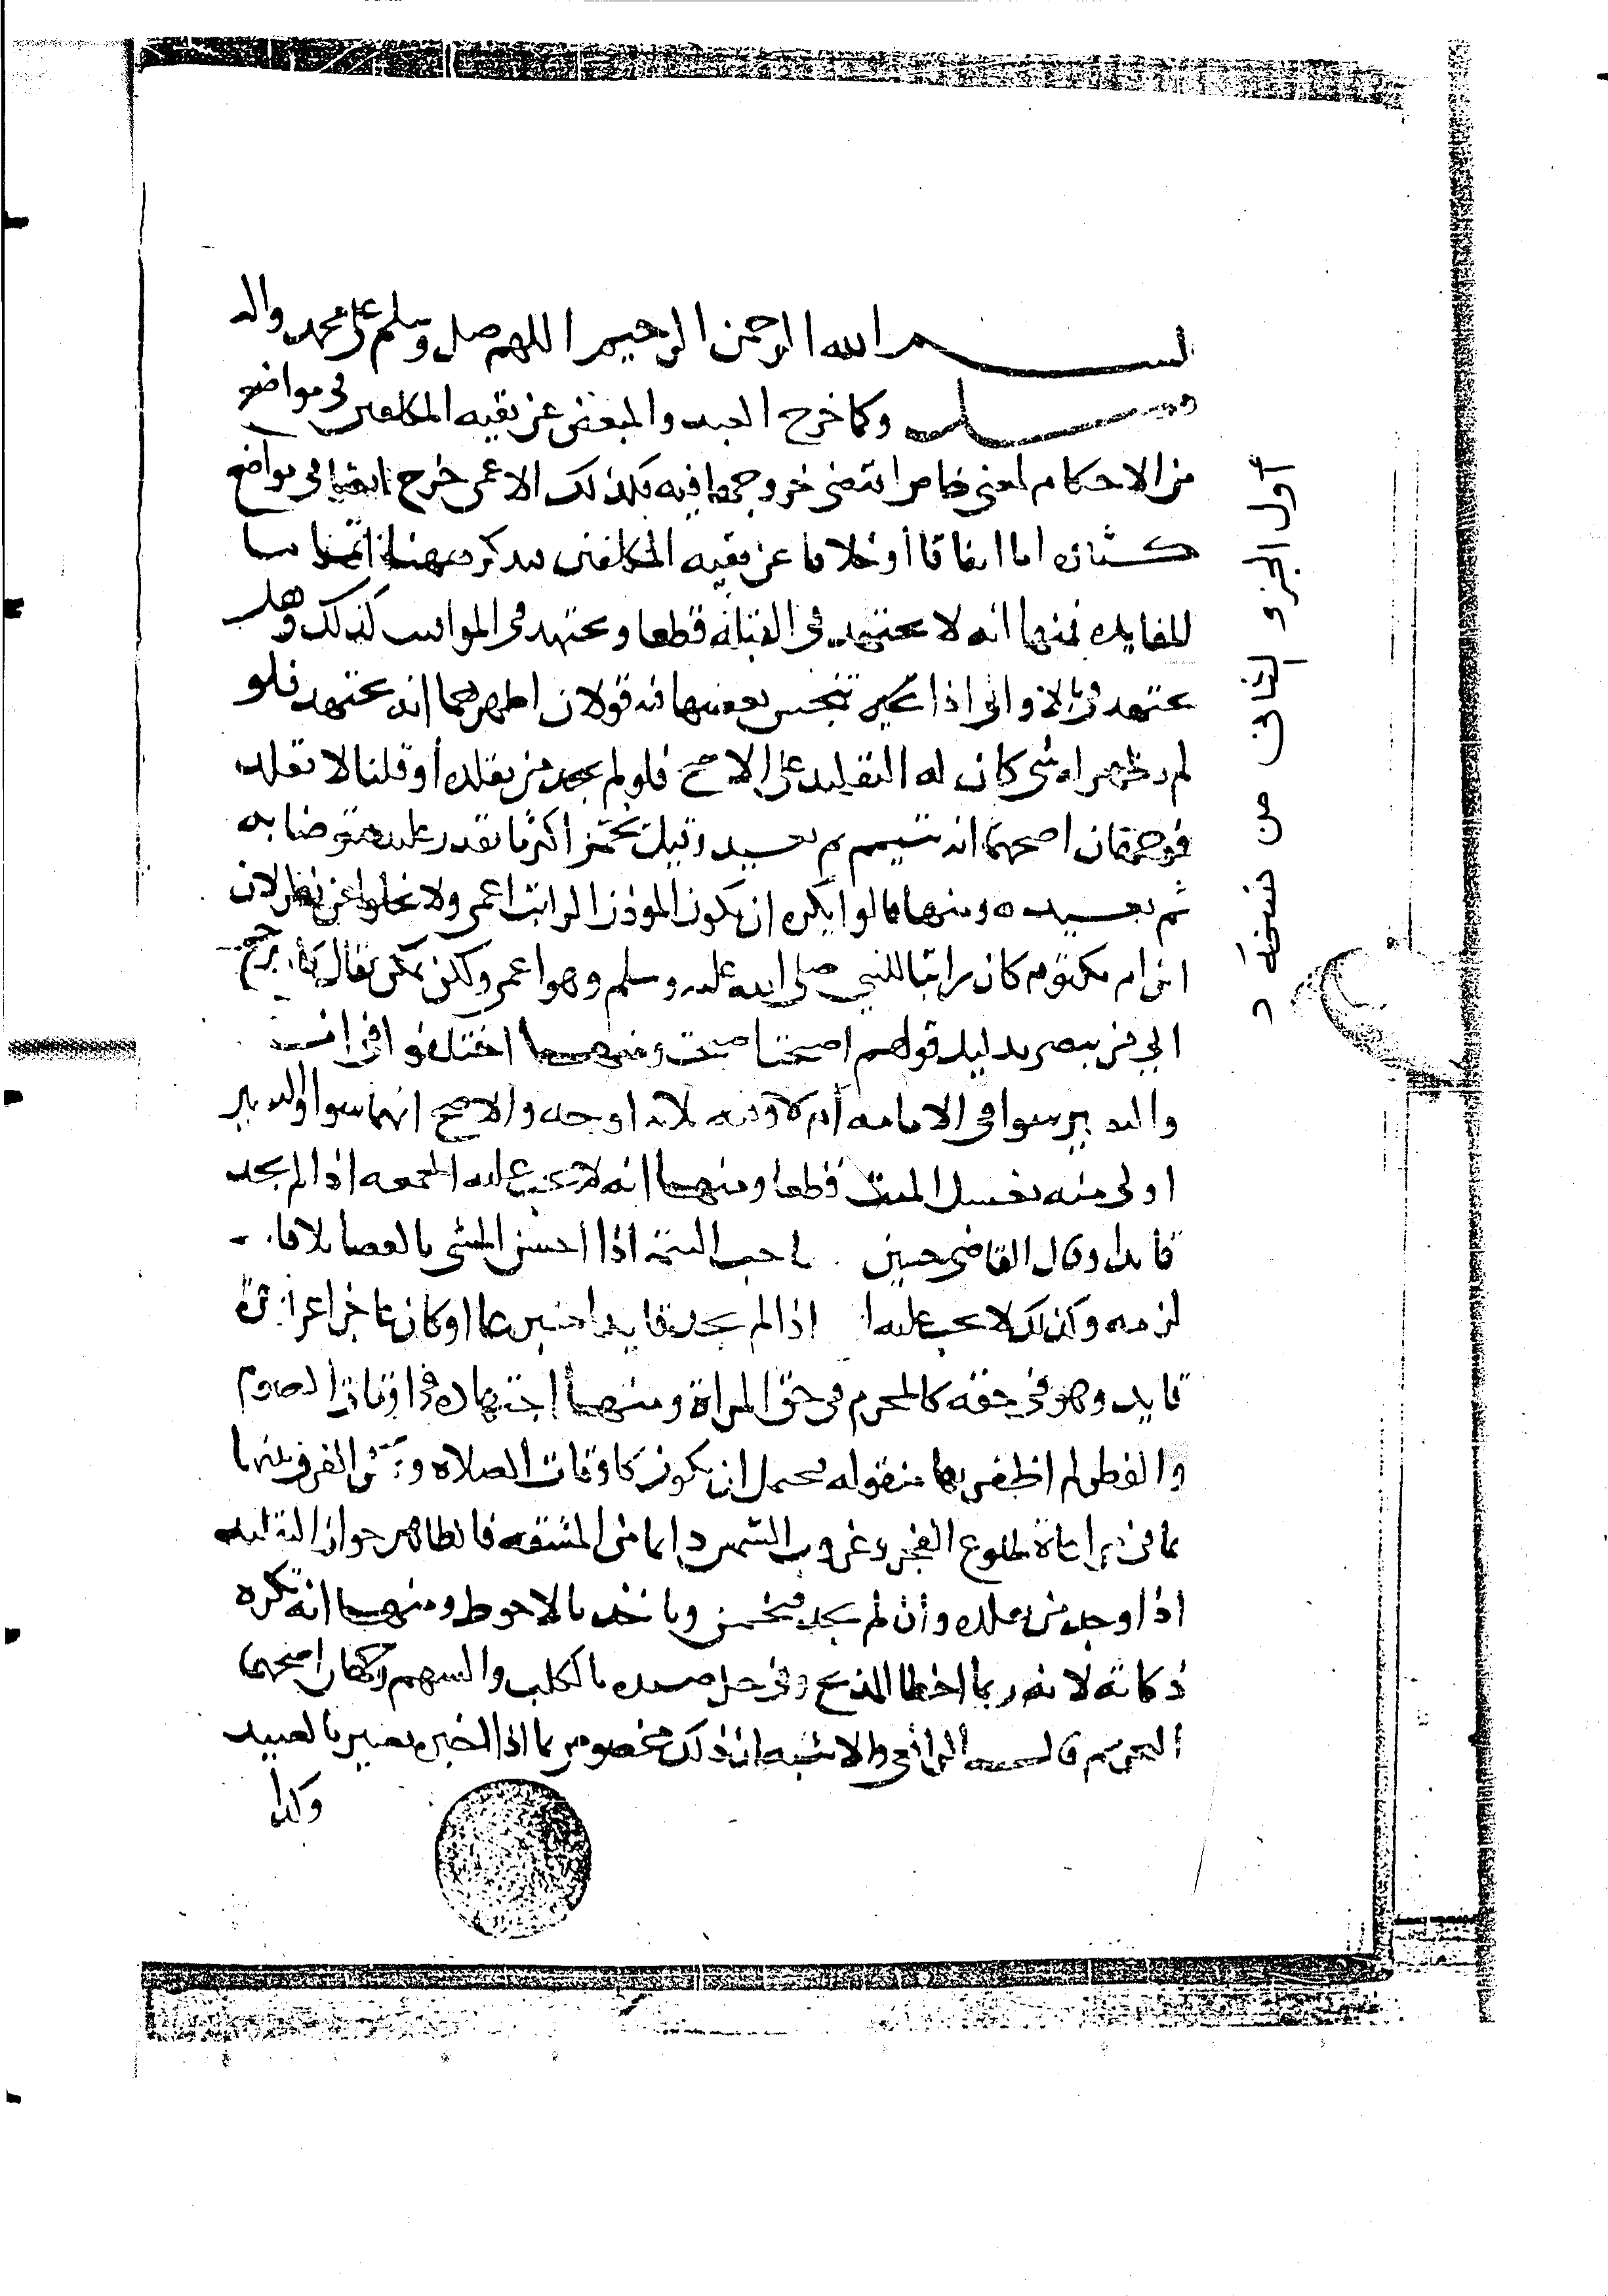 بسم الله الرحمن الرحيم اللهم صل وسلم على محمد واله
وسلم وكما خرج العبد والمبعض عن بقيه المكلفين في مواضع
من الاحكام لمعنى خاص اقتضى خروجهما فيه فكذلك الاعمى خرج ايضا في مواضع
كثيره اما اتفاقا أو خلافا عن بقيه المكلفين
للفايده فمنها انه لا يجتهد في القبلة قطعا ويجتهد في المواقيت كذلك وهل
يجتهد في الاواني اذا تنجس بعضها فيه قولان اظهرهما انه يجتهد فلو
لم يظهر له شي كان له التقليد على الاصح فلو لم يجد من يقلده أو قلنا لا يقلد
فوجهان اصحهما انه يتيمم ثم يعيد وقيل يخمن اكثر ما يقدر عليه ويتوضا به
ثم يعيده ومنها قالوا يكره ان يكون الموذن الراتب اعمى ولا يخلوا عن نظر لان
ابن ام مكتوم كان راتبا للنبي صلى الله عليه وسلم وهو اعمى ولكن يمكن يقال كان يرجع
الي من يبصر بدليل قولهم اصبحت اصبحت ومنها اختلفوا في انه
والبصير سوا في الامامه أم لا وفيه ثلاثه اوجه والاصح انهما سوا والبصير
اولى منه بغسل الميت قطعا ومنها انه لا يجب عليه الجمعه اذا لم يجد
قايدا وقال القاضي حسين وصاحب التتمه اذا احسن المشي بالعصا بلا قايد
لزمه وكذلك لا يجب عليه اذا لم يجد قايدا متبرعا او كان عاجزا عن اجرة
قايد وهو في حقه كالمحرم في حق المراة ومنها اجتهاده في اوقات الصوم
والفطر لم اظفر بها منقوله يحتمل ان يكون كاوقات الصلاه و الفرق بينهما
بما في مراعاة طلوع الفجر وغروب الشمس دايما من المشقه فالظاهر جواز التقليد
اذا وجد من يقلده وأن لم يجد فيخمن وياخذ بالاحوط ومنها انه تكره
ذكاته لانه ربما اخطا المذبح وفي حل صيده بالكلب والسهم وجهان اصحهما
التحريم قال الرافعي والاشبه ان ذلك مخصوص بما اذا اخبره بصير بالصيد
وكذا
أول الجزو الثاني من نسخة د